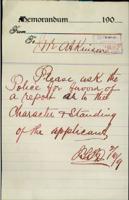 Memorandum 190
From
To Mr Atkinson
Please ask the
Police for favour of
a report as to the
Character & Standing
of the applicant